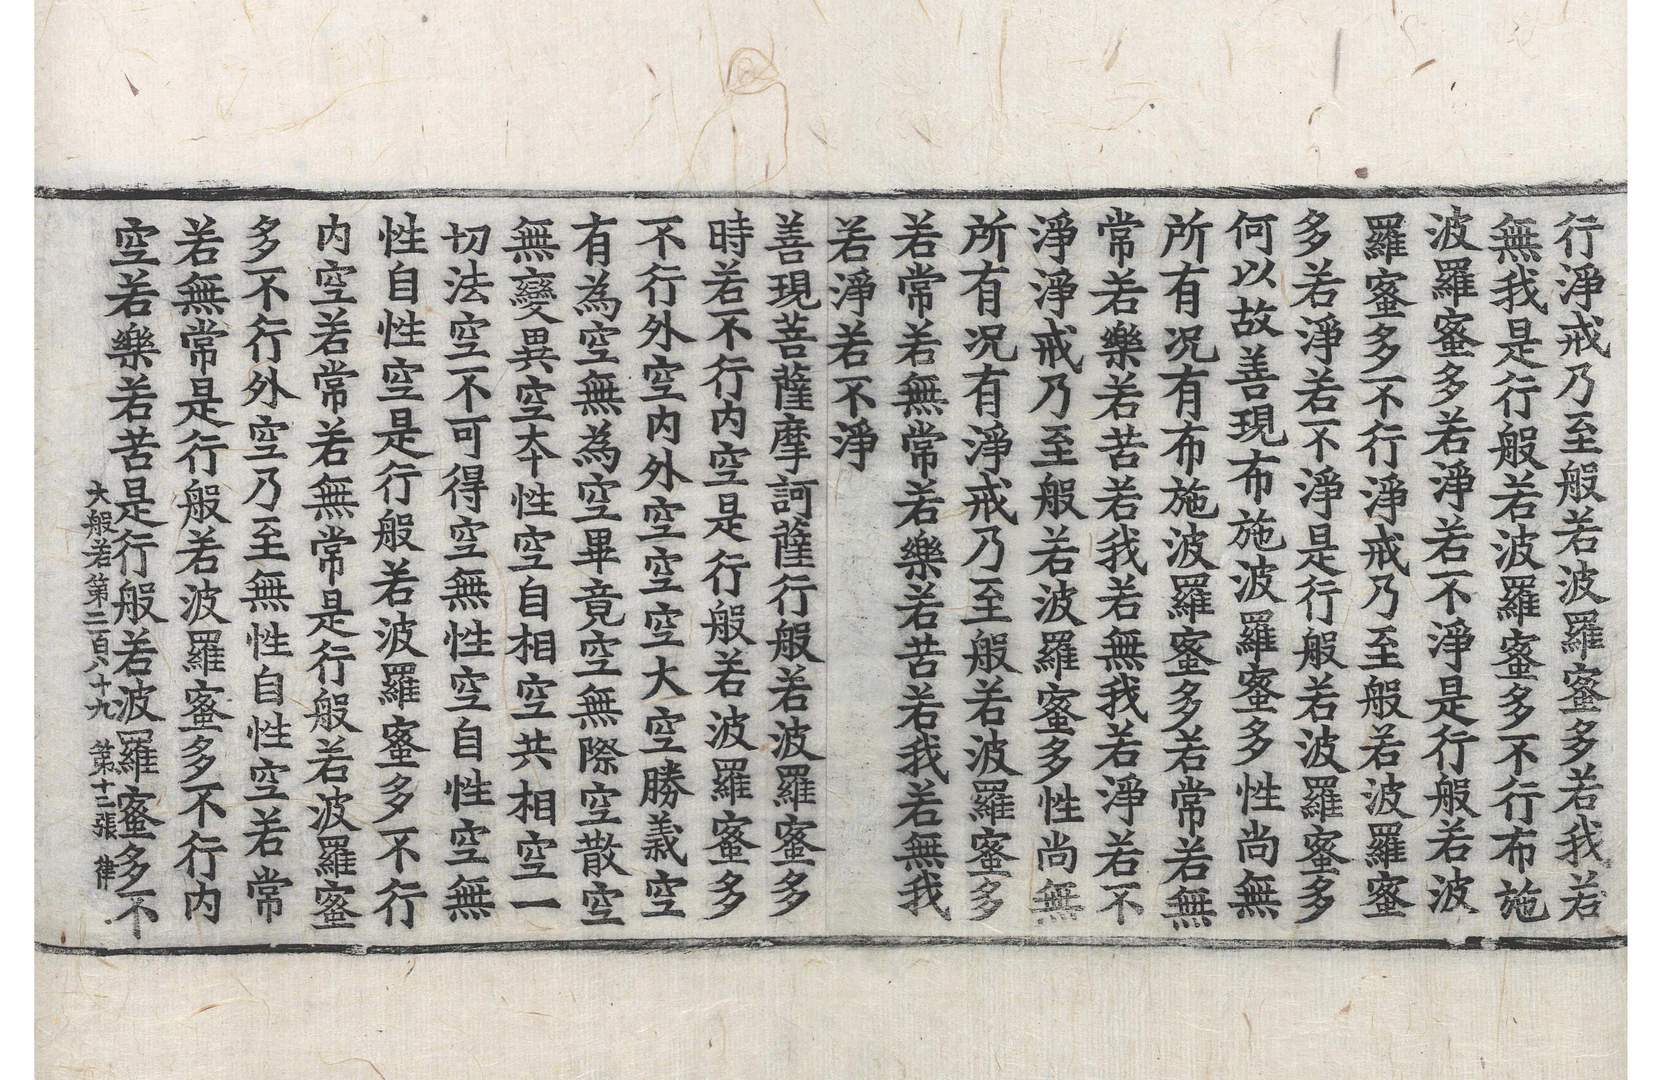 行淨戒乃至般若波羅蜜多若我若
無我是行般若波羅蜜多不行布施
波羅蜜多若淨若不淨是行般若波
羅蜜多不行淨戒乃至般若波羅蜜
多若淨若不淨是行般若波羅蜜多
何以故善現布施波羅蜜多性尚無
所有况有布施波羅蜜多若常若無
常若樂若苦若我若無我若淨若不
淨淨戒乃至般若波羅蜜多性尚無
所有况有淨戒乃至般若波羅蜜多
若常若無常若樂若苦若我若無我
若淨若不淨
善現菩薩摩訶薩行般若波羅蜜多
時若不行内空是行般若波羅蜜多
不行外空内外空空空大空勝義空
有為空無為空畢竟空無際空散空
無變異空夲性空自相空共相空一
切法空不可得空無性空自性空無
性自性空是行般若波羅蜜多不行
内空若常若無常是行般若波羅蜜
多不行外空乃至無性自性空若常
若無常是行般若波羅蜜多不行内
空若樂若苦是行般若波羅蜜多不
大般若第二百八十九 第十二張 律